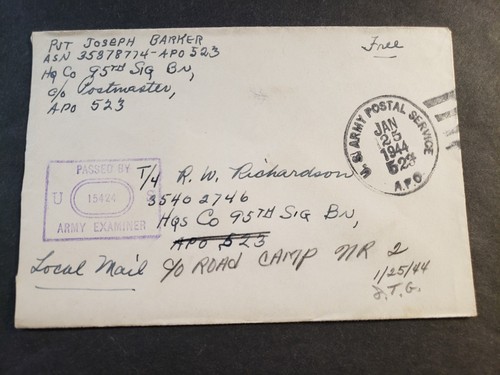 Pvt Joseph Barker
ASN 35878774-APO 523
Hq Co 95TH Sig Bn,
c/o Postmaster,
APO 523
Free
U.S. ARMY POSTAL SERVICE
JAN
25
1944
523
A.P.O.
PASSED BY
U S
15424
ARMY EXAMINER
T/4 R. W. Richardson
35402746
Hqs Co 95TH Sig Bn,
APO 523
Local Mail c/o ROAD CAMP NR 2
1/25/44
J.T.G.